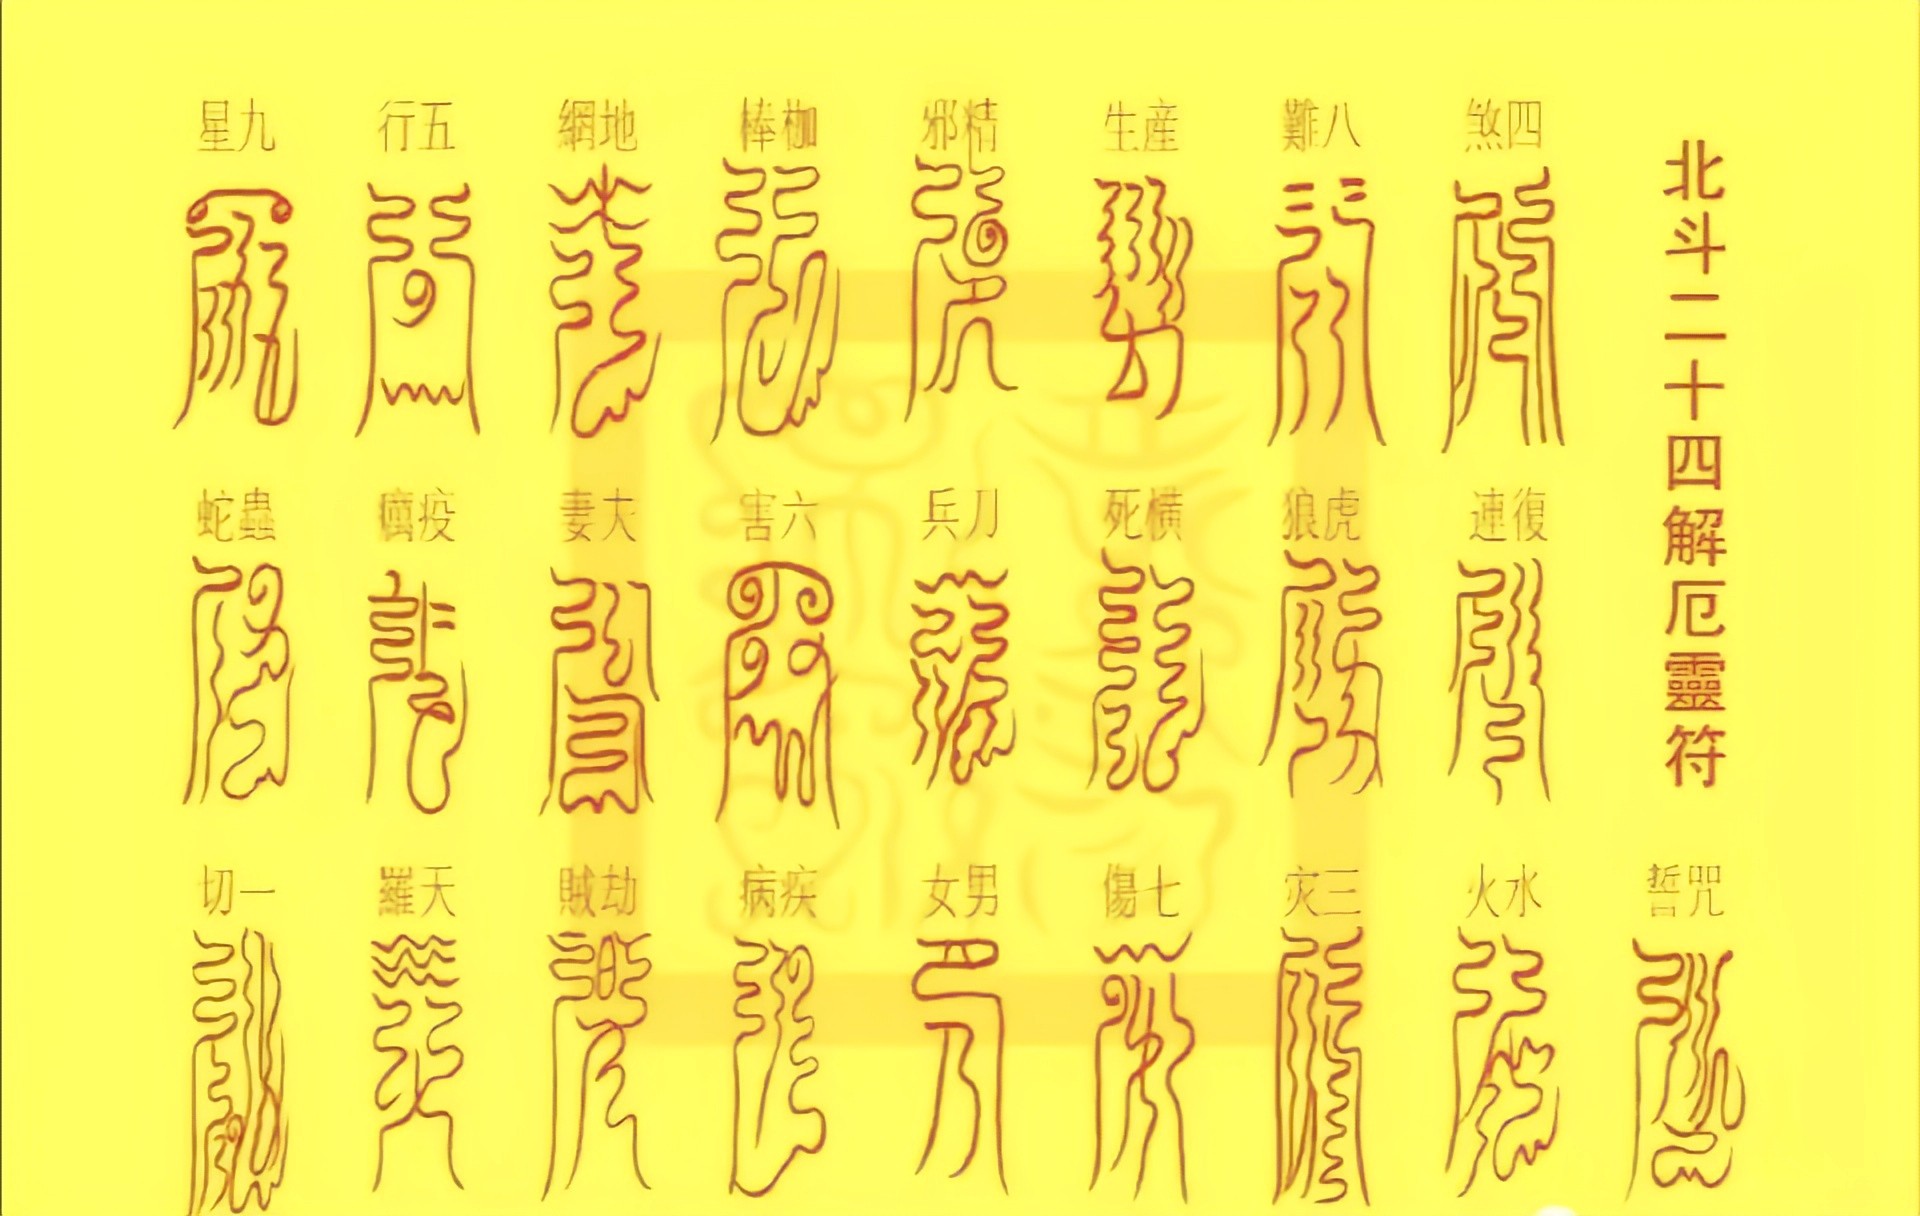 北斗二十四解厄靈符
四煞 八難 産生 精邪 枷棒 地網 五行 九星
復連 虎狼 横死 刀兵 六害 夫妻 疫癘 蟲蛇
咒誓 水火 三灾 七傷 男女 疾病 劫賊 天羅 一切